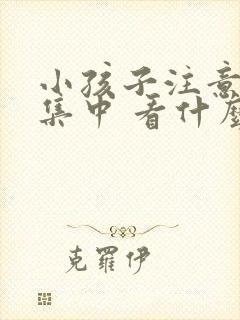 小孩子注意
集中 看什
克羅伊